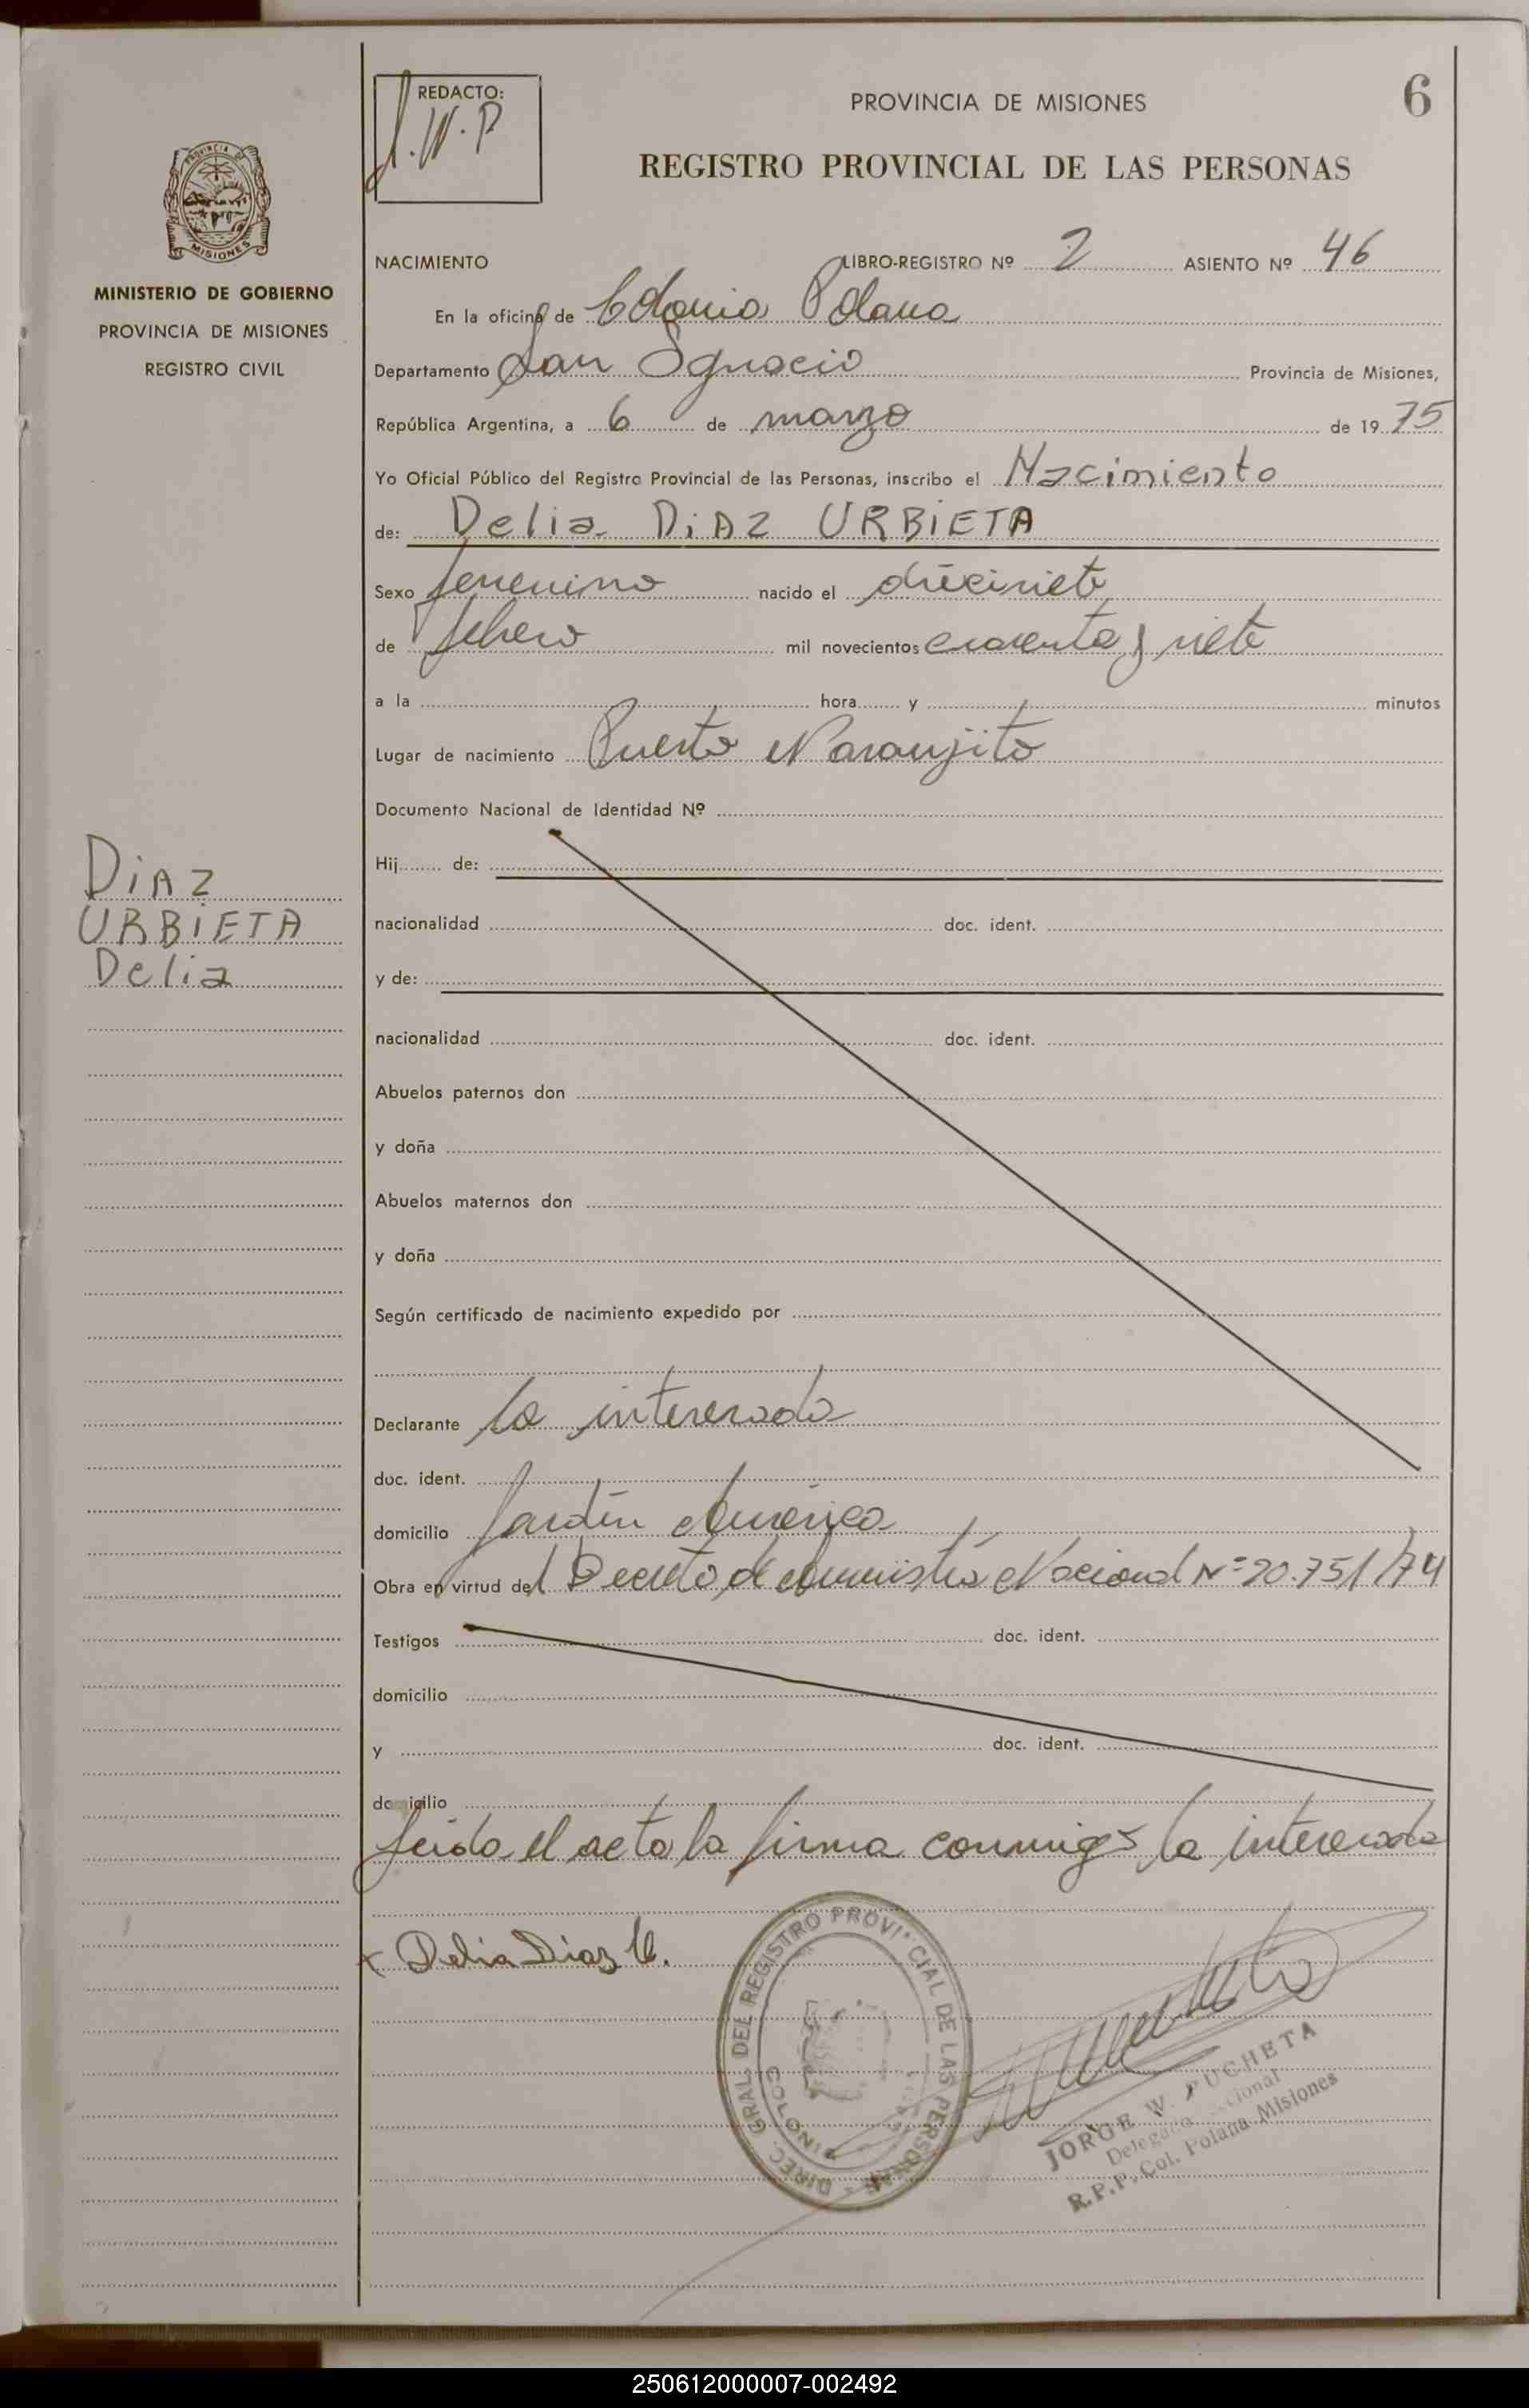 REDACTO:
J.W.P
PROVINCIA DE MISIONES
6
REGISTRO PROVINCIAL DE LAS PERSONAS
PROVINCIA DE MISIONES
MINISTERIO DE GOBIERNO
PROVINCIA DE MISIONES
REGISTRO CIVIL
DiAZ
URBiETA
Delia
NACIMIENTO LIBRO-REGISTRO Nº 2 ASIENTO Nº 46
En la oficina de Colonia Polana
Departamento San Ignacio Provincia de Misiones,
República Argentina, a 6 de marzo de 1975
Yo Oficial Público del Registro Provincial de las Personas, inscribo el Nacimiento
de: Delia DiAZ URBiETA
Sexo femenino nacido el diecisiete
de febrero mil novecientos cuarenta y siete
a la hora y minutos
Lugar de nacimiento Puerto Naranjito
Documento Nacional de Identidad Nº
Hij de:
nacionalidad doc. ident.
y de:
nacionalidad doc. ident.
Abuelos paternos don
y doña
Abuelos maternos don
y doña
Según certificado de nacimiento expedido por
Declarante la interesada
doc. ident.
domicilio Jardín América
Obra en virtud del Decreto de Amnistía Nacional Nº 20.751/74
Testigos doc. ident.
domicilio
y doc. ident.
domicilio
Leida el acta la firma conmigo la interesada
x Delia Diaz U.
DIREC. GRAL. DEL REGISTRO PROVINCIAL DE LAS PERSONAS
JORGE W. PUCHETA
Delegado
R.P.P. Col. Polana Misiones
250612000007-002492